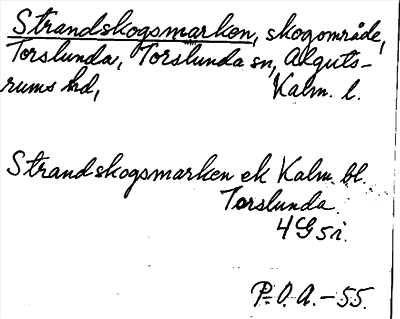 Strandskogsmarken, skogområde,
Torslunda, Torslunda sn, Alguts-
rums hd, Kalm. l.
Strandskogsmarken ek Kalm. bl.
Torslunda.
4G5i.
P.O.A.-55.